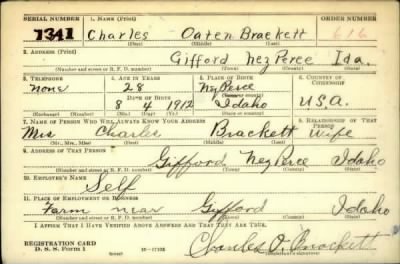 SERIAL NUMBER 1. NAME (Print) ORDER NUMBER
1341 Charles Oaten Brackett 616
(First) (Middle) (Last)
2. ADDRESS (Print)
Gifford Nez Perce Ida.
(Number and street or R. F. D. number) (Town) (County) (State)
3. TELEPHONE 4. AGE IN YEARS 5. PLACE OF BIRTH 6. COUNTRY OF CITIZENSHIP
none 28 Nez Perce
DATE OF BIRTH (Town or county)
8 4 1912 Idaho U.S.A.
(Exchange) (Number) (Mo.) (Day) (Yr.) (State or country)
7. NAME OF PERSON WHO WILL ALWAYS KNOW YOUR ADDRESS 8. RELATIONSHIP OF THAT PERSON
Mrs Charles Brackett Wife
(Mr., Mrs., Miss) (First) (Middle) (Last)
9. ADDRESS OF THAT PERSON
Gifford Nez Perce Idaho
(Number and street or R. F. D. number) (Town) (County) (State)
10. EMPLOYER'S NAME
Self
11. PLACE OF EMPLOYMENT OR BUSINESS
Farm near Gifford Idaho
(Number and street or R. F. D. number) (Town) (County) (State)
I AFFIRM THAT I HAVE VERIFIED ABOVE ANSWERS AND THAT THEY ARE TRUE.
REGISTRATION CARD
D. S. S. Form 1 Charles O. Brackett
(Registrant's signature)